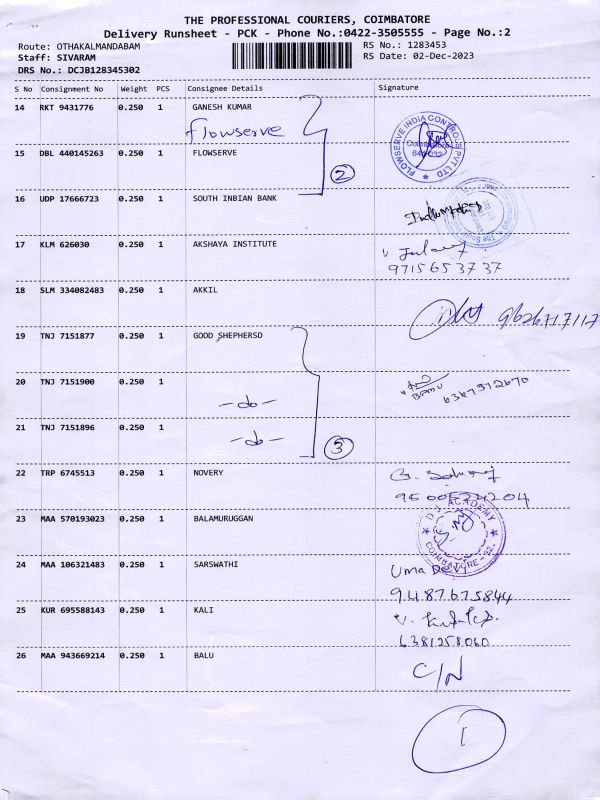 THE PROFESSIONAL COURIERS, COIMBATORE
Delivery Runsheet - PCK - Phone No.:0422-3505555 - Page No.:2
Route: OTHAKALMANDABAM
RS No.: 1283453
Staff: SIVARAM
RS Date: 02-Dec-2023
DRS No.: DCJB128345302
S No Consignment No Weight PCS Consignee Details Signature
14 RKT 9431776 0.250 1 GANESH KUMAR
Flowserve
FLOWSERVE INDIA CONTROLS PVT LTD
15 DBL 440145263 0.250 1 FLOWSERVE
2
16 UDP 17666723 0.250 1 SOUTH INBIAN BANK
17 KLM 626030 0.250 1 AKSHAYA INSTITUTE
9715653737
18 SLM 334082483 0.250 1 AKKIL
9626717117
19 TNJ 7151877 0.250 1 GOOD SHEPHERSD
20 TNJ 7151900 0.250 1
BABU 6367372670
-do-
21 TNJ 7151896 0.250 1
-do-
3
22 TRP 6745513 0.250 1 NOVERY
23 MAA 570193023 0.250 1 BALAMURUGGAN
D.J. ACADEMY
COIMBATORE - 32.
24 MAA 106321483 0.250 1 SARSWATHI
Uma Devi
9487675844
25 KUR 695588143 0.250 1 KALI
6381258060
26 MAA 943669214 0.250 1 BALU
C/N
1